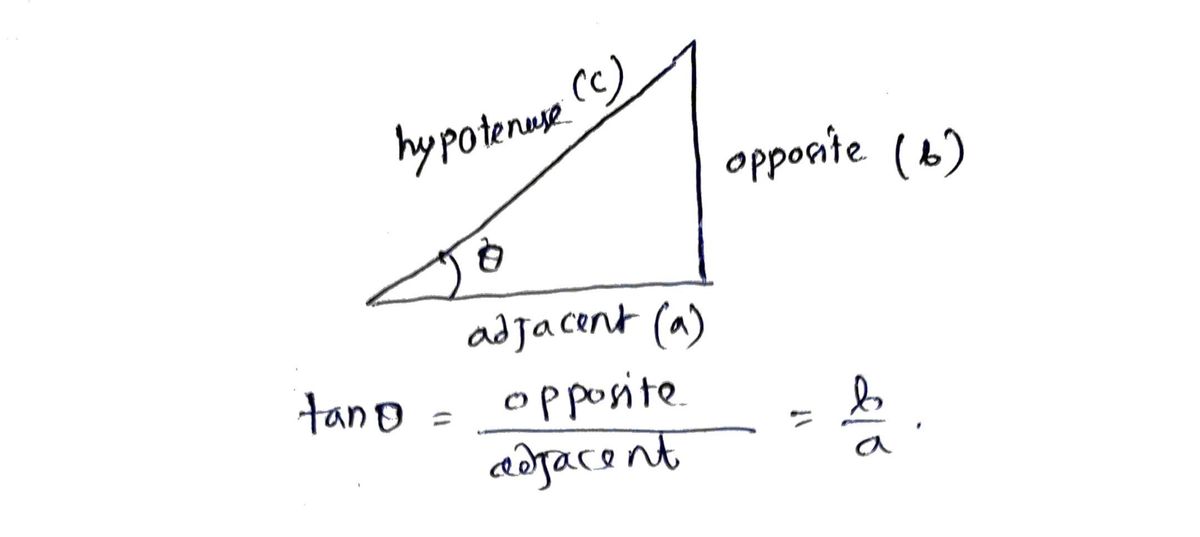 hypotenuse (c)
opposite (b)
θ
adjacent (a)
tanθ = opposite / adjacent = b / a .